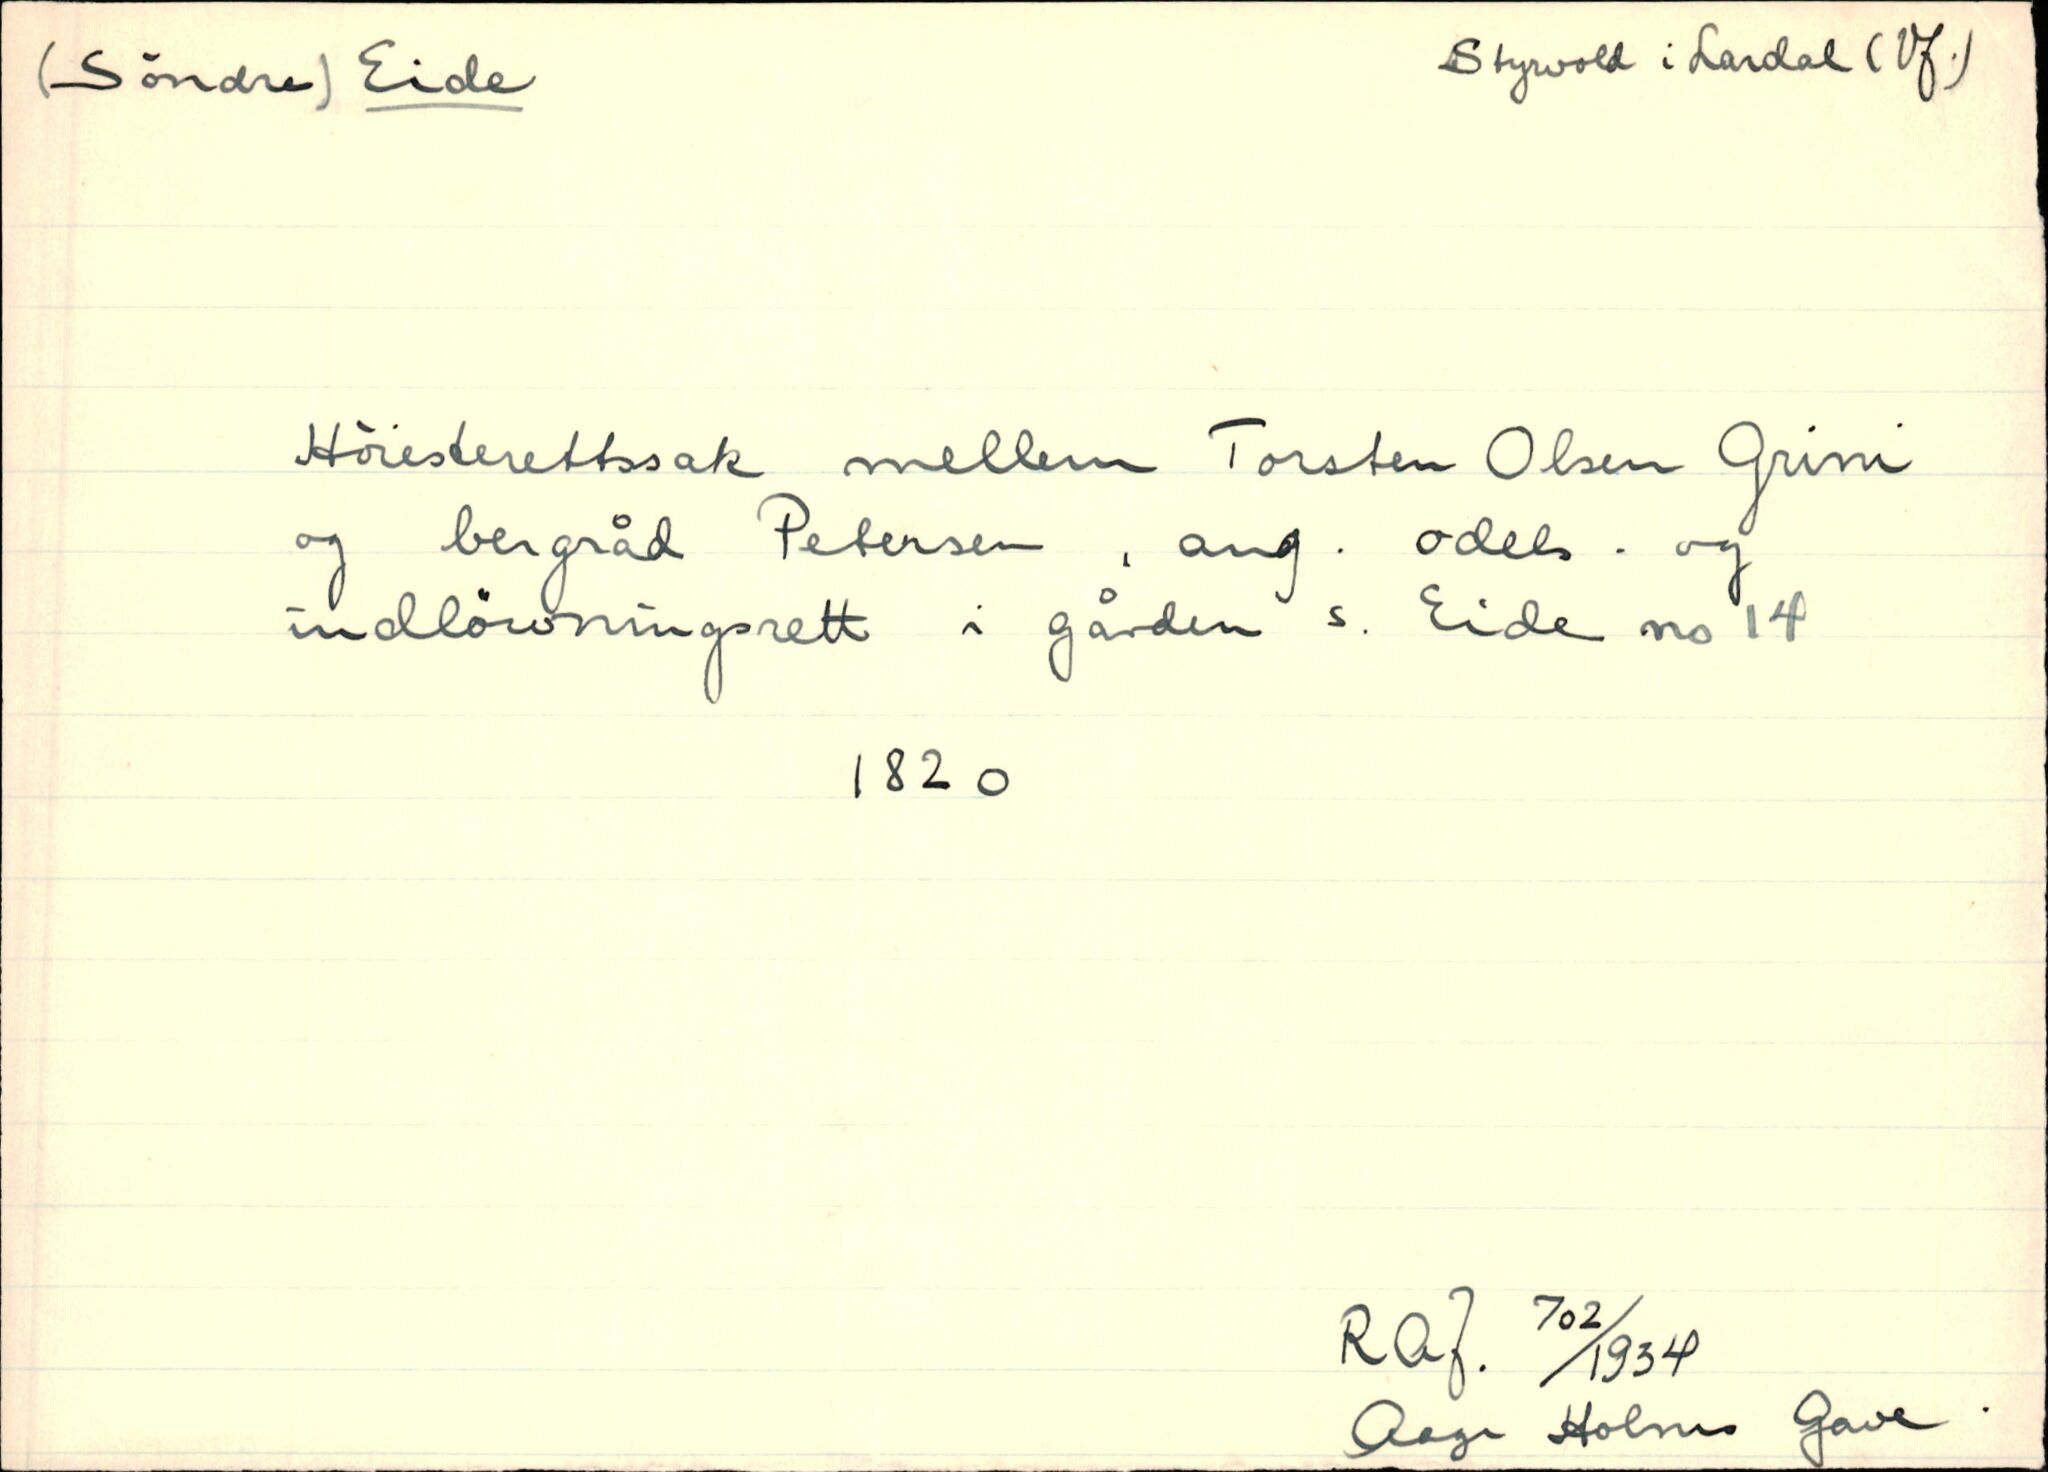 (Söndre) Eide
Styrvold i Lardal (Vf.)
Höiesterettssak mellem Torsten Olsen Grini
og bergråd Petersen, ang. odels- og
indlösningsrett i gården s. Eide no 14
1820
RAJ. 702/1934
Aage Holms Gave.